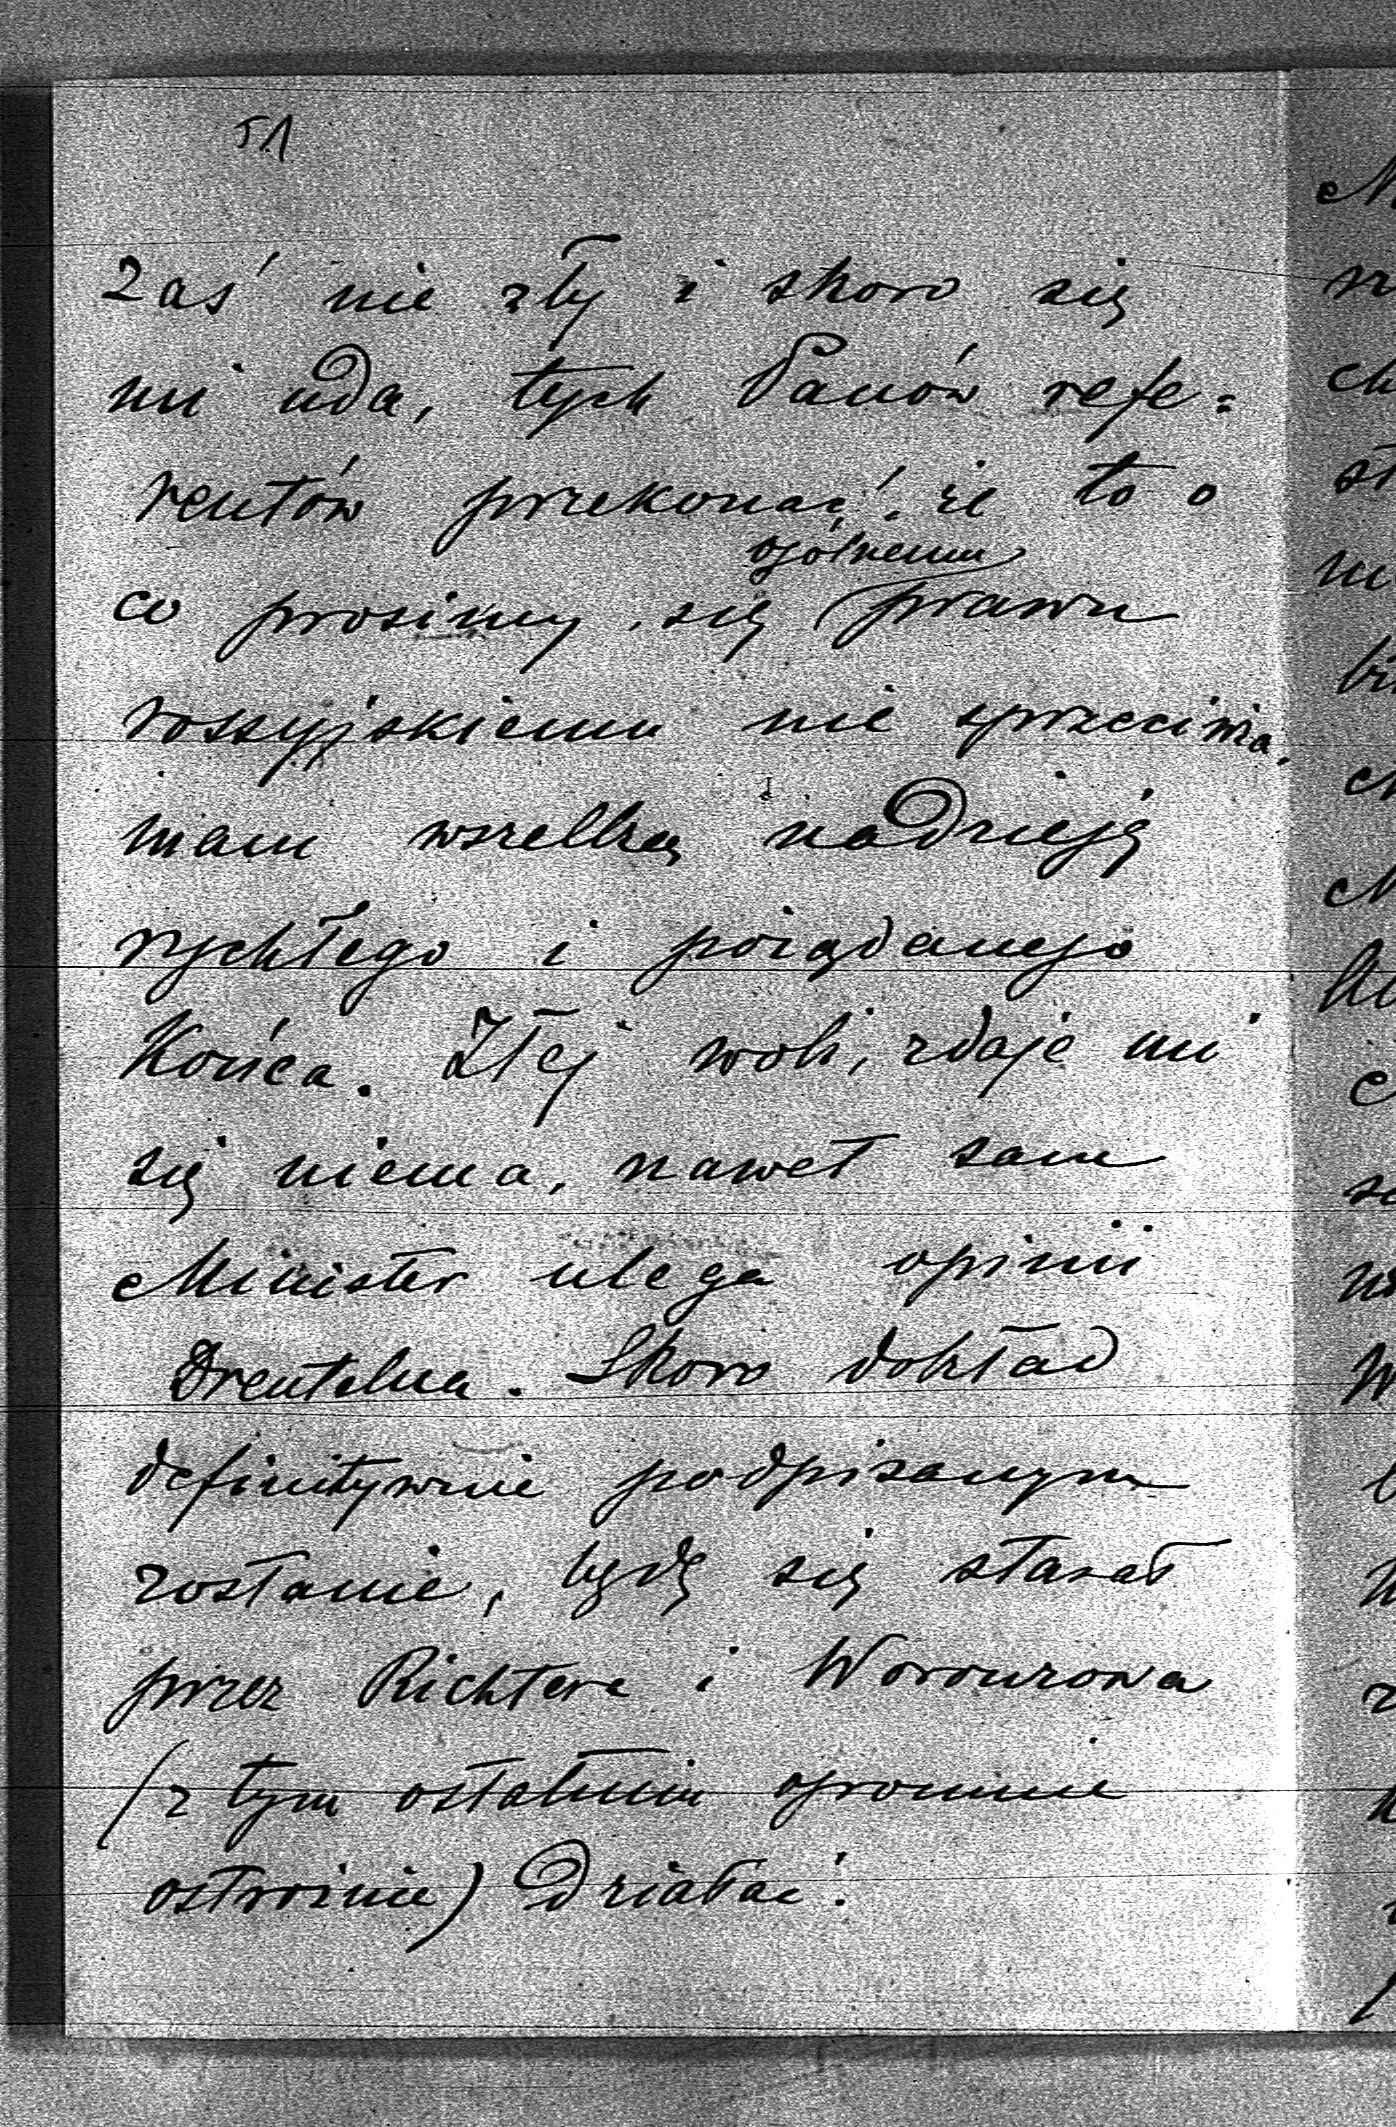 51
Zaś nie zły i skoro się
mi uda, tych Panów refe=
rentów przekonać, że to o
ogólnemu
co prosimy, się prawu
rossyjskiemu nie sprzeciwia,
mam wszelką nadzieję
rychłego i pożądanego
Końca. Złej woli, zdaje mi
się niema, nawet sam
Minister ulega opinii
Drentelna. Skoro dokład
definitywnie podpisanym
zostanie, będę się starał
przez Richtera i Woronzowa
(z tym ostatnim ogromnie
ostrożnie) działać.